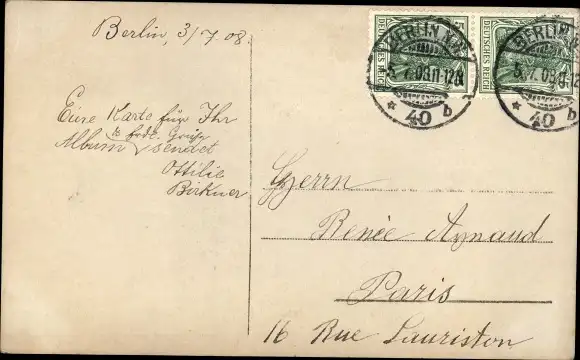 Berlin, 3/7 08.
Eine Karte für Ihr
& frdl. Grüße
Album sendet
Ottilie
Birkner
DEUTSCHES REICH
DEUTSCHES REICH
BERLIN N.W.
5.7.08.11-12
* 40 b
BERLIN
5.7.08.11
* 40 b
Herrn
Renée Aynaud
Paris
16 Rue Lauriston